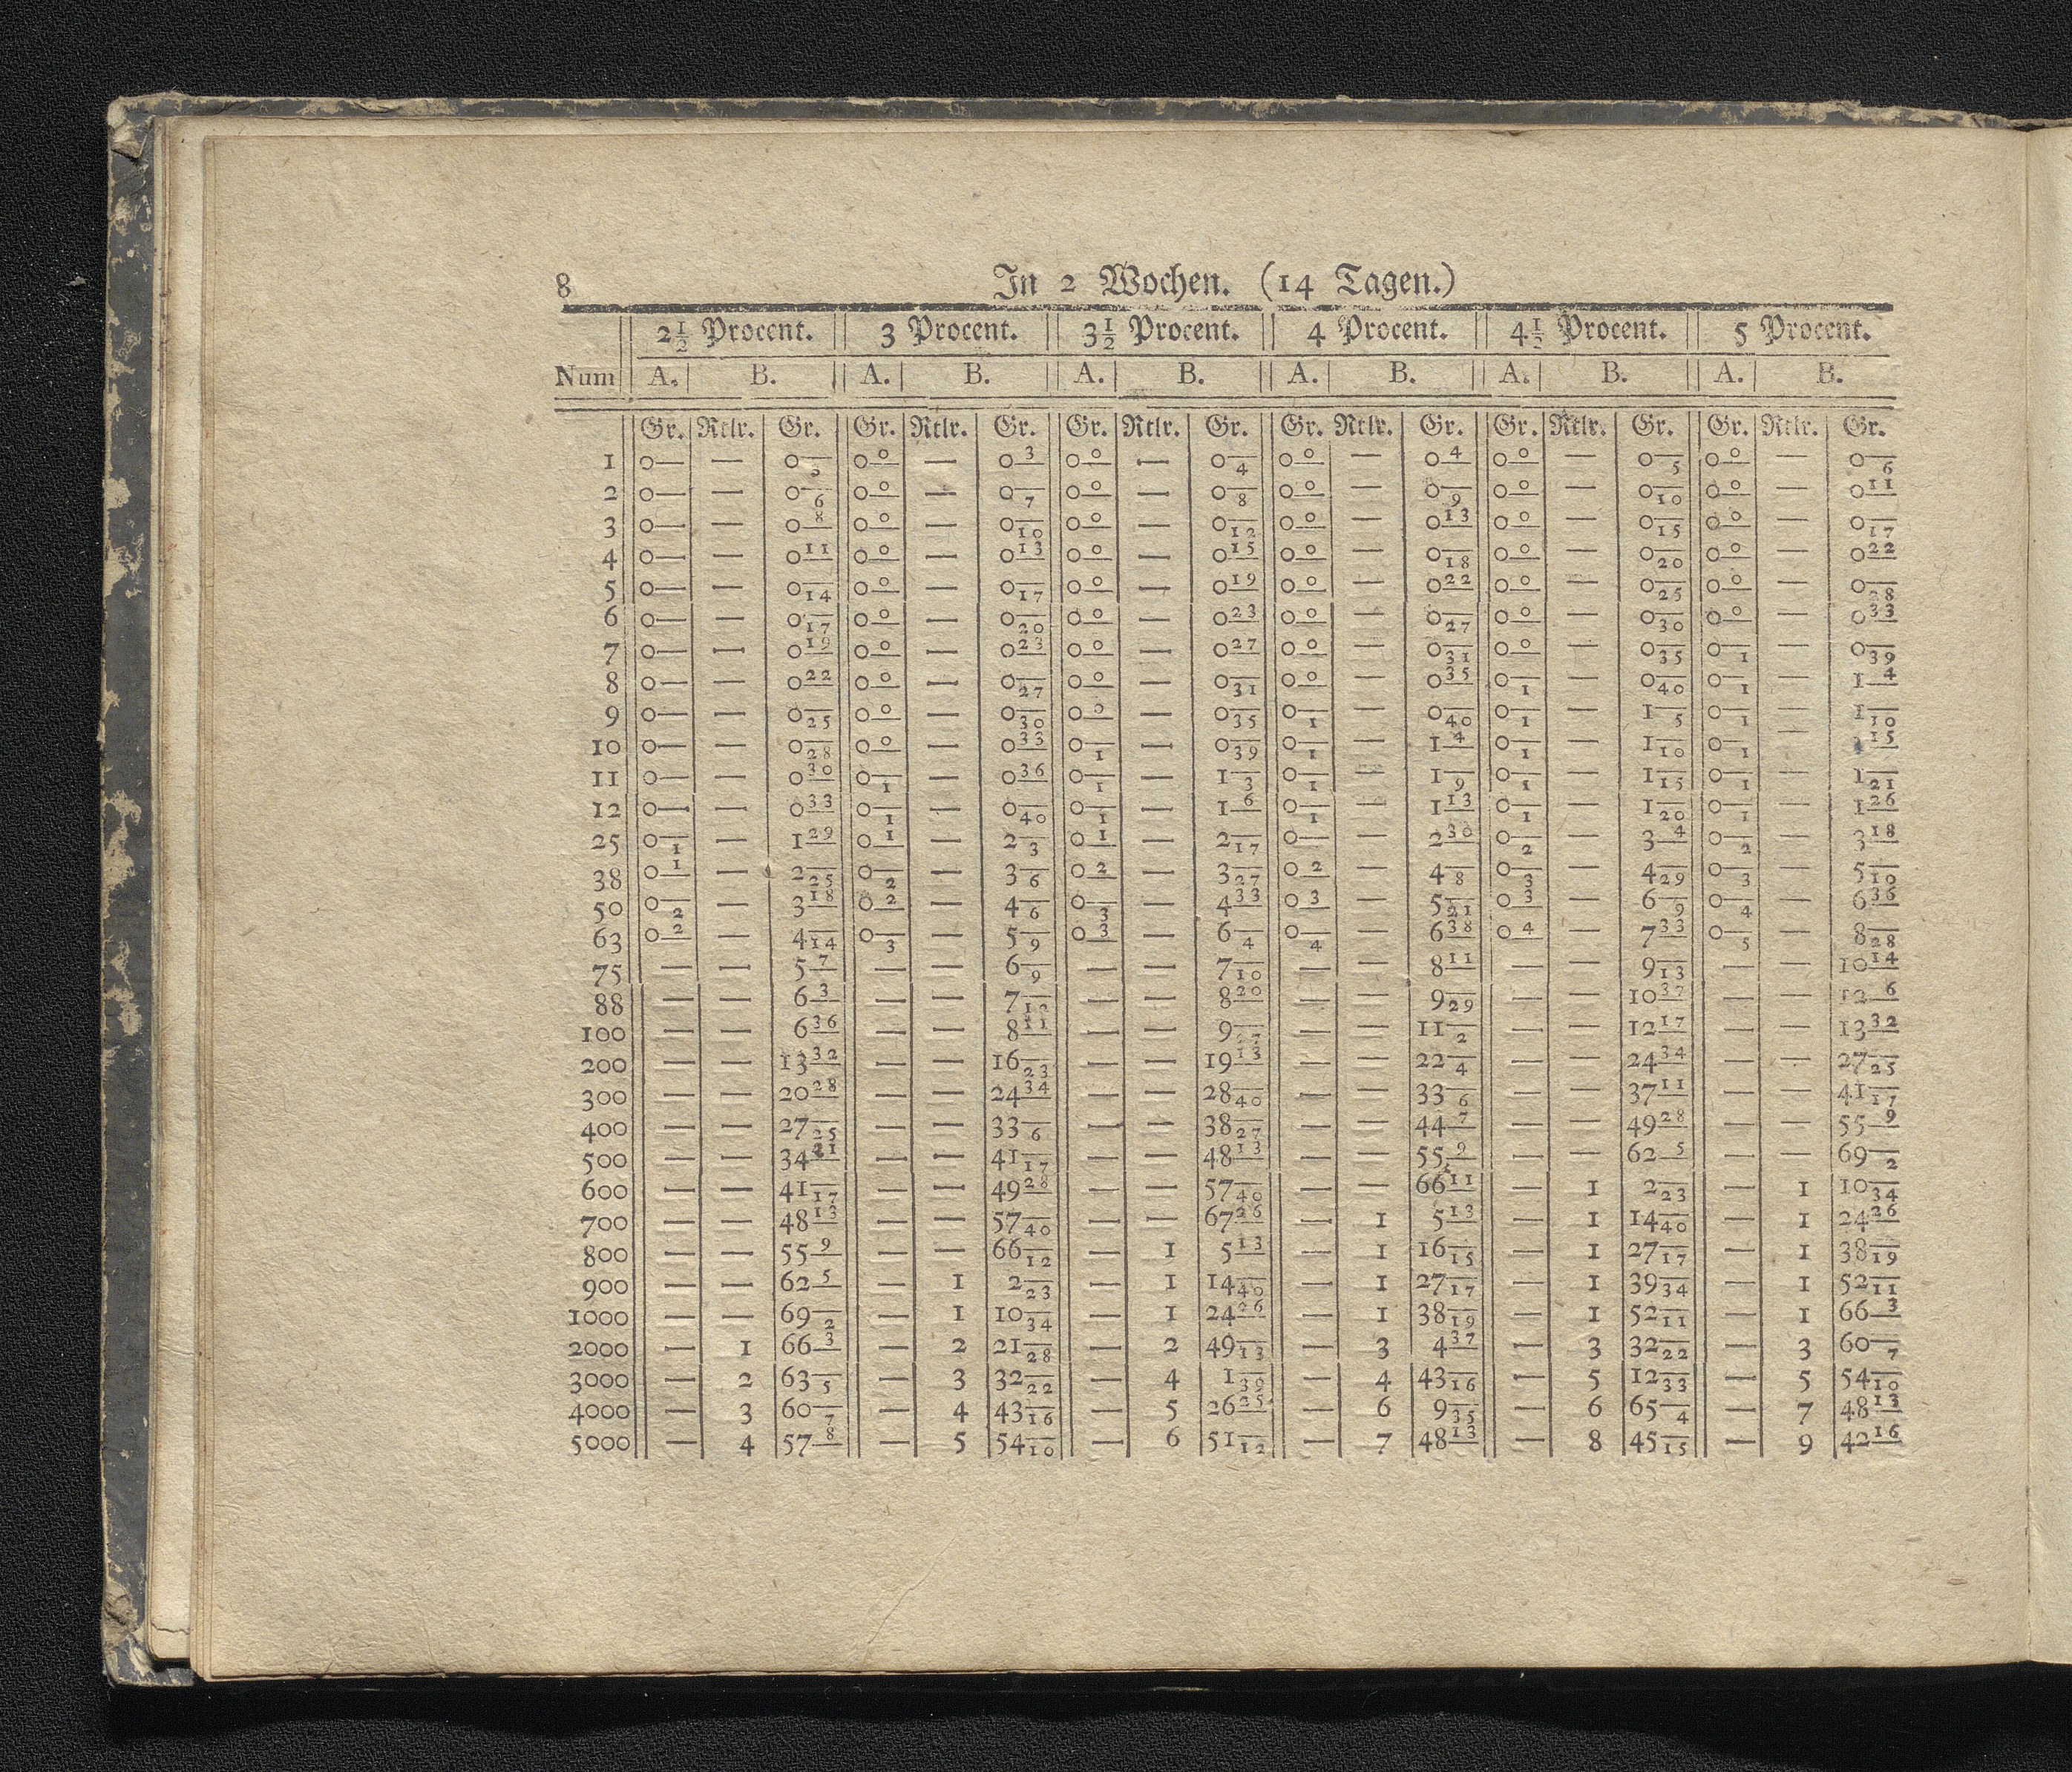 8 In 2 Wochen. (14 Tagen.)
2½ Procent. 3 Procent. 3½ Procent. 4 Procent. 4½ Procent. 5 Procent.
Num A. B. A. B. A. B. A. B. A. B. A. B.
Gr. Rtlr. Gr. Gr. Rtlr. Gr. Gr. Rtlr. Gr. Gr. Rtlr. Gr. Gr. Rtlr. Gr. Gr. Rtlr. Gr.
1 0 — — 0 3 0 0 — 0 3 0 0 — 0 4 0 0 — 0 4 0 0 — 0 5 0 0 — 0 6
2 0 — — 0 6 0 0 — 0 7 0 0 — 0 8 0 0 — 0 9 0 0 — 0 10 0 0 — 0 11
3 0 — — 0 8 0 0 — 0 10 0 0 — 0 12 0 0 — 0 13 0 0 — 0 15 0 0 — 0 17
4 0 — — 0 11 0 0 — 0 13 0 0 — 0 15 0 0 — 0 18 0 0 — 0 20 0 0 — 0 22
5 0 — — 0 14 0 0 — 0 17 0 0 — 0 19 0 0 — 0 22 0 0 — 0 25 0 0 — 0 28
6 0 — — 0 17 0 0 — 0 20 0 0 — 0 23 0 0 — 0 27 0 0 — 0 30 0 0 — 0 33
7 0 — — 0 19 0 0 — 0 23 0 0 — 0 27 0 0 — 0 31 0 0 — 0 35 0 1 — 0 39
8 0 — — 0 22 0 0 — 0 27 0 0 — 0 31 0 0 — 0 35 0 1 — 0 40 0 1 — 1 4
9 0 — — 0 25 0 0 — 0 30 0 0 — 0 35 0 1 — 0 40 0 1 — 1 5 0 1 — 1 10
10 0 — — 0 28 0 0 — 0 33 0 1 — 0 39 0 1 — 1 4 0 1 — 1 10 0 1 — 15
11 0 — — 0 30 0 1 — 0 36 0 1 — 1 3 0 1 — 1 9 0 1 — 1 15 0 1 — 1 21
12 0 — — 0 33 0 1 — 0 40 0 1 — 1 6 0 1 — 1 13 0 1 — 1 20 0 1 — 1 26
25 0 1 — 1 29 0 1 — 2 3 0 1 — 2 17 0 — — 2 30 0 2 — 3 4 0 2 — 3 18
38 0 1 — 2 25 0 2 — 3 6 0 2 — 3 27 0 2 — 4 8 0 3 — 4 29 0 3 — 5 10
50 0 2 — 3 18 0 2 — 4 6 0 3 — 4 33 0 3 — 5 21 0 3 — 6 9 0 4 — 6 36
63 0 2 — 4 14 0 3 — 5 9 0 3 — 6 4 0 4 — 6 38 0 4 — 7 33 0 5 — 8 28
75 — — 5 7 — — 6 9 — — 7 10 — — 8 11 — — 9 13 — — 10 14
88 — — 6 3 — — 7 12 — — 8 20 — — 9 29 — — 10 37 — — 12 6
100 — — 6 36 — — 8 11 — — 9 27 — — 11 2 — — 12 17 — — 13 32
200 — — 13 32 — — 16 23 — — 19 13 — — 22 4 — — 24 34 — — 27 25
300 — — 20 28 — — 24 34 — — 28 40 — — 33 6 — — 37 11 — — 41 17
400 — — 27 25 — — 33 6 — — 38 27 — — 44 7 — — 49 28 — — 55 9
500 — — 34 21 — — 41 17 — — 48 13 — — 55 9 — — 62 5 — — 69 2
600 — — 41 17 — — 49 28 — — 57 40 — — 66 11 — 1 2 23 — 1 10 34
700 — — 48 13 — — 57 40 — — 67 26 — 1 5 13 — 1 14 40 — 1 24 26
800 — — 55 9 — — 66 12 — 1 5 13 — 1 16 15 — 1 27 17 — 1 38 19
900 — — 62 5 — 1 2 23 — 1 14 40 — 1 27 17 — 1 39 34 — 1 52 11
1000 — — 69 2 — 1 10 34 — 1 24 26 — 1 38 19 — 1 52 11 — 1 66 3
2000 — 1 66 3 — 2 21 28 — 2 49 13 — 3 4 37 — 3 32 22 — 3 60 7
3000 — 2 63 5 — 3 32 22 — 4 1 39 — 4 43 16 — 5 12 33 — 5 54 10
4000 — 3 60 7 — 4 43 16 — 5 26 25 — 6 9 35 — 6 65 4 — 7 48 13
5000 — 4 57 8 — 5 54 10 — 6 51 12 — 7 48 13 — 8 45 15 — 9 42 16